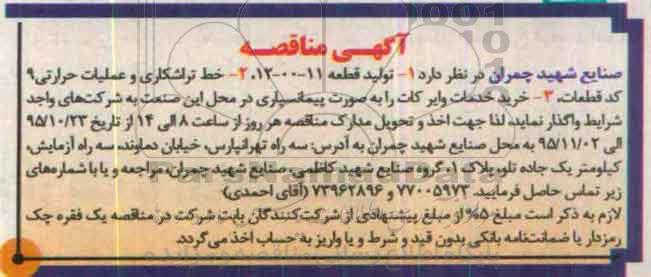 آگهی مناقصه
صنایع شهید چمران در نظر دارد ۱- تولید قطعه ۱۱-۰۰-۱۲، ۲- خط تراشکاری و عملیات حرارتی ۹
کد قطعات، ۳- خرید خدمات وایر کات را به صورت پیمانسپاری در محل این صنعت به شرکت‌های واجد
شرایط واگذار نماید، لذا جهت اخذ و تحویل مدارک مناقصه هر روز از ساعت ۸ الی ۱۴ از تاریخ ۹۵/۱۰/۲۳
الی ۹۵/۱۱/۰۲ به محل صنایع شهید چمران به آدرس: سه راه تهرانپارس، خیابان دماوند، سه راه آزمایش،
کیلومتر یک جاده تلو، پلاک ۱، گروه صنایع شهید کاظمی، صنایع شهید چمران، مراجعه و یا با شماره‌های
زیر تماس حاصل فرمایید. ۷۷۰۰۵۹۷۳ و ۷۳۹۶۲۸۹۶ (آقای احمدی)
لازم به ذکر است مبلغ ۵% از مبلغ پیشنهادی از شرکت‌کنندگان بابت شرکت در مناقصه یک فقره چک
رمزدار یا ضمانت‌نامه بانکی بدون قید و شرط و یا واریز به حساب اخذ می‌گردد.